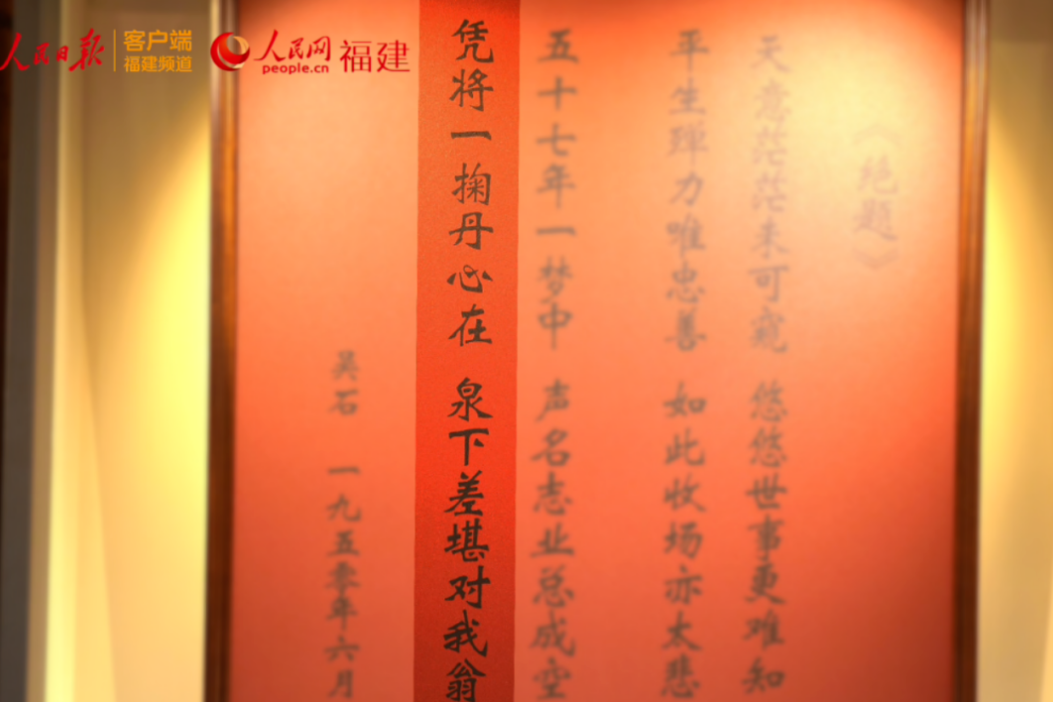 人民日报 客户端
福建频道
人民网 福建
people.cn
《绝题》
天意茫茫未可窥 悠悠世事更难知
平生殚力唯忠善 如此收场亦太悲
五十七年一梦中 声名志业总成空
凭将一掬丹心在 泉下差堪对我翁
吴石 一九五零年六月